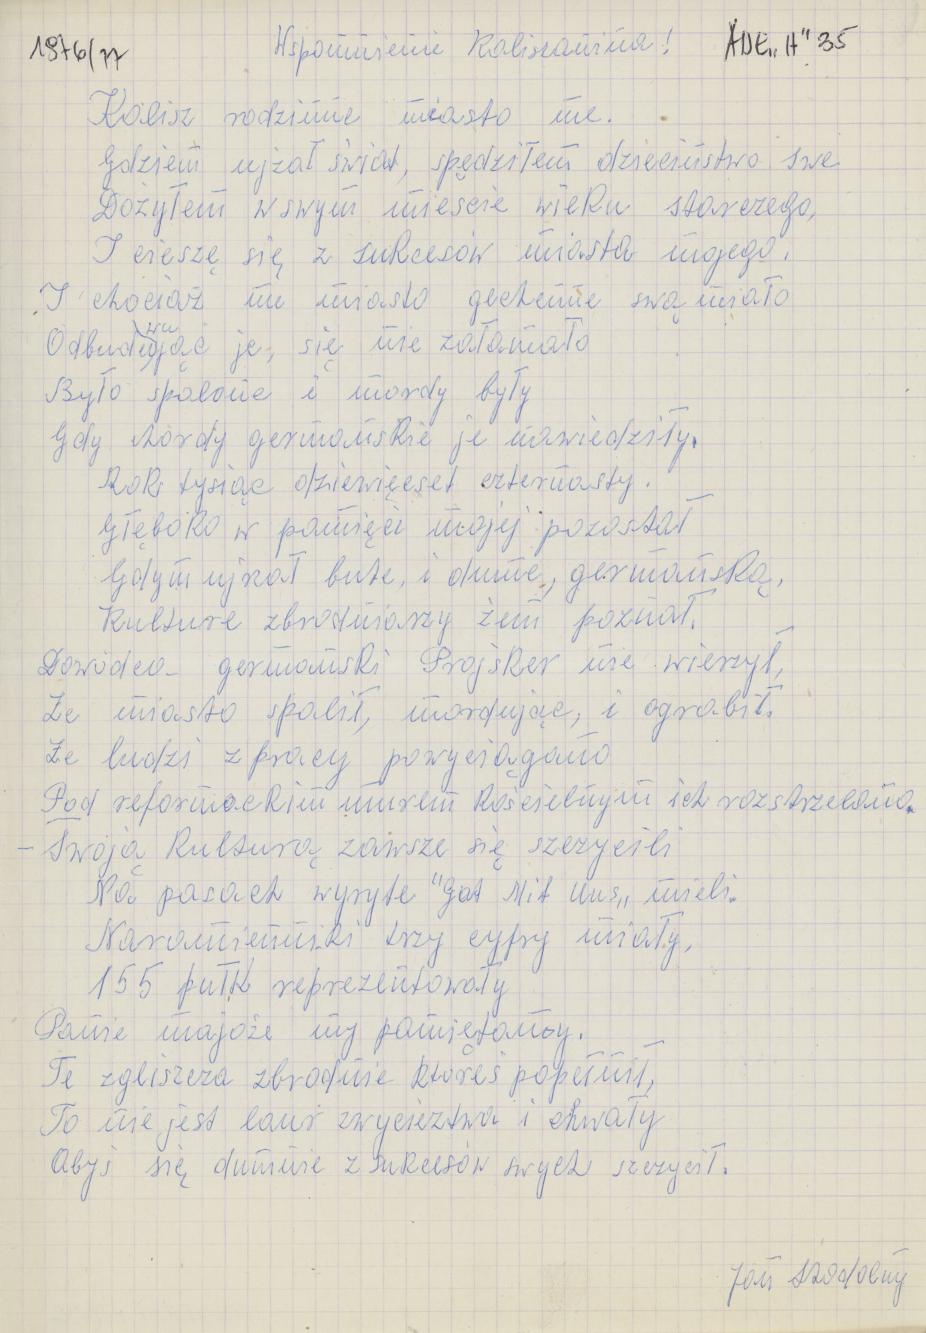 1976/77 Wspomnienie Kaliszanina! ADE „H" 35
Kalisz rodzinne miasto me.
Gdziem ujzał świat, spędziłem dzieciństwo swe
Dożyłem w swym mieście wieku starczego,
I cieszę się z sukcesów miasta mojego.
I chociaż me miasto gechenne swą miało
Odbudowując je, się nie załamało
Było spalone i mordy były
Gdy hordy germańskie je nawiedziły.
Rok tysiąc dziewięćset czternasty.
Głęboko w pamięci mojej pozostał
Gdym ujrzał bute, i dume, germańską,
Kulture zbrodniarzy żem poznał.
Dowódca germański Projsker nie wierzył,
Że miasto spalił, mordując, i ograbił.
Że ludzi z pracy powyciągano
Pod reformackim murem kościelnym ich rozstrzelano.
– Swoją kulturą zawsze się szczycili
Na pasach wyryte "Got Mit Uns„ mieli.
Naramienniki trzy cyfry miały,
155 pułk reprezentowały
Panie majorze my pamiętamy.
Te zgliszcza zbrodnie któreś popełnił,
To nie jest laur zwycieztwa i chwały
Abyś się dumnie z sukcesów swych szczycił.
Jan